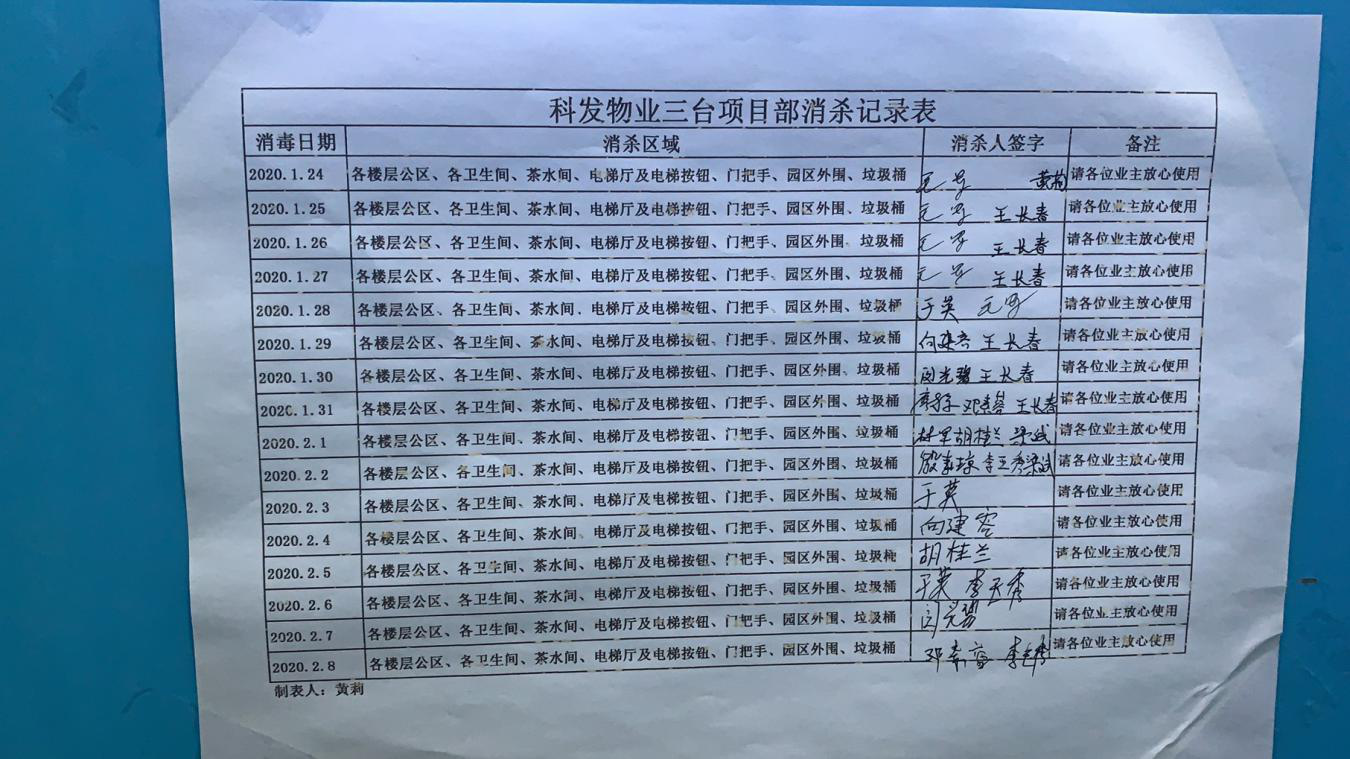 科发物业三台项目部消杀记录表
消毒日期 消杀区域 消杀人签字 备注
2020.1.24 各楼层公区、各卫生间、茶水间、电梯厅及电梯按钮、门把手、园区外围、垃圾桶 请各位业主放心使用
2020.1.25 各楼层公区、各卫生间、茶水间、电梯厅及电梯按钮、门把手、园区外围、垃圾桶 王长春 请各位业主放心使用
2020.1.26 各楼层公区、各卫生间、茶水间、电梯厅及电梯按钮、门把手、园区外围、垃圾桶 王长春 请各位业主放心使用
2020.1.27 各楼层公区、各卫生间、茶水间、电梯厅及电梯按钮、门把手、园区外围、垃圾桶 王长春 请各位业主放心使用
2020.1.28 各楼层公区、各卫生间、茶水间、电梯厅及电梯按钮、门把手、园区外围、垃圾桶 于英 请各位业主放心使用
2020.1.29 各楼层公区、各卫生间、茶水间、电梯厅及电梯按钮、门把手、园区外围、垃圾桶 王长春 请各位业主放心使用
2020.1.30 各楼层公区、各卫生间、茶水间、电梯厅及电梯按钮、门把手、园区外围、垃圾桶 闵光碧 王长春 请各位业主放心使用
2020.1.31 各楼层公区、各卫生间、茶水间、电梯厅及电梯按钮、门把手、园区外围、垃圾桶 王长春 请各位业主放心使用
2020.2.1 各楼层公区、各卫生间、茶水间、电梯厅及电梯按钮、门把手、园区外围、垃圾桶 林军 胡桂兰 梁斌 请各位业主放心使用
2020.2.2 各楼层公区、各卫生间、茶水间、电梯厅及电梯按钮、门把手、园区外围、垃圾桶 殷素琼 梁斌 请各位业主放心使用
2020.2.3 各楼层公区、各卫生间、茶水间、电梯厅及电梯按钮、门把手、园区外围、垃圾桶 于英 请各位业主放心使用
2020.2.4 各楼层公区、各卫生间、茶水间、电梯厅及电梯按钮、门把手、园区外围、垃圾桶 向建容 请各位业主放心使用
2020.2.5 各楼层公区、各卫生间、茶水间、电梯厅及电梯按钮、门把手、园区外围、垃圾桶 胡桂兰 请各位业主放心使用
2020.2.6 各楼层公区、各卫生间、茶水间、电梯厅及电梯按钮、门把手、园区外围、垃圾桶 于英 请各位业主放心使用
2020.2.7 各楼层公区、各卫生间、茶水间、电梯厅及电梯按钮、门把手、园区外围、垃圾桶 闵光碧 请各位业主放心使用
2020.2.8 各楼层公区、各卫生间、茶水间、电梯厅及电梯按钮、门把手、园区外围、垃圾桶 请各位业主放心使用
制表人：黄莉